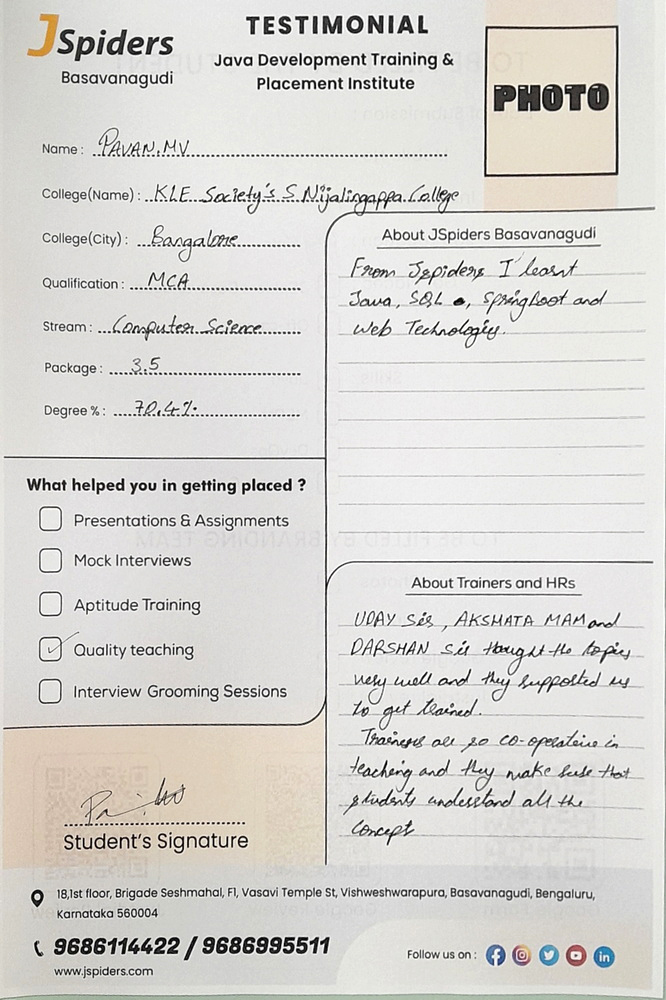 JSpiders
Basavanagudi
TESTIMONIAL
Java Development Training &
Placement Institute
PHOTO
Name : PAVAN.MV
College(Name) : KLE Society's S Nijalingappa College
College(City) : Bangalore
Qualification : MCA
Stream : Computer Science
Package : 3.5
Degree % : 70.4%
What helped you in getting placed ?
Presentations & Assignments
Mock Interviews
Aptitude Training
Quality teaching
Interview Grooming Sessions
Student's Signature
About JSpiders Basavanagudi
From Jspiders I learnt
Java, SQL, SpringBoot and
Web Technologies.
About Trainers and HRs
UDAY Sir, AKSHATA MAM and
DARSHAN Sir thought the topics
very well and they supported us
to get trained.
Trainers are so co-operative in
teaching and they make sure that
students understand all the
concept
18,1st floor, Brigade Seshmahal, F1, Vasavi Temple St, Vishweshwarapura, Basavanagudi, Bengaluru,
Karnataka 560004
9686114422 / 9686995511
www.jspiders.com
Follow us on :